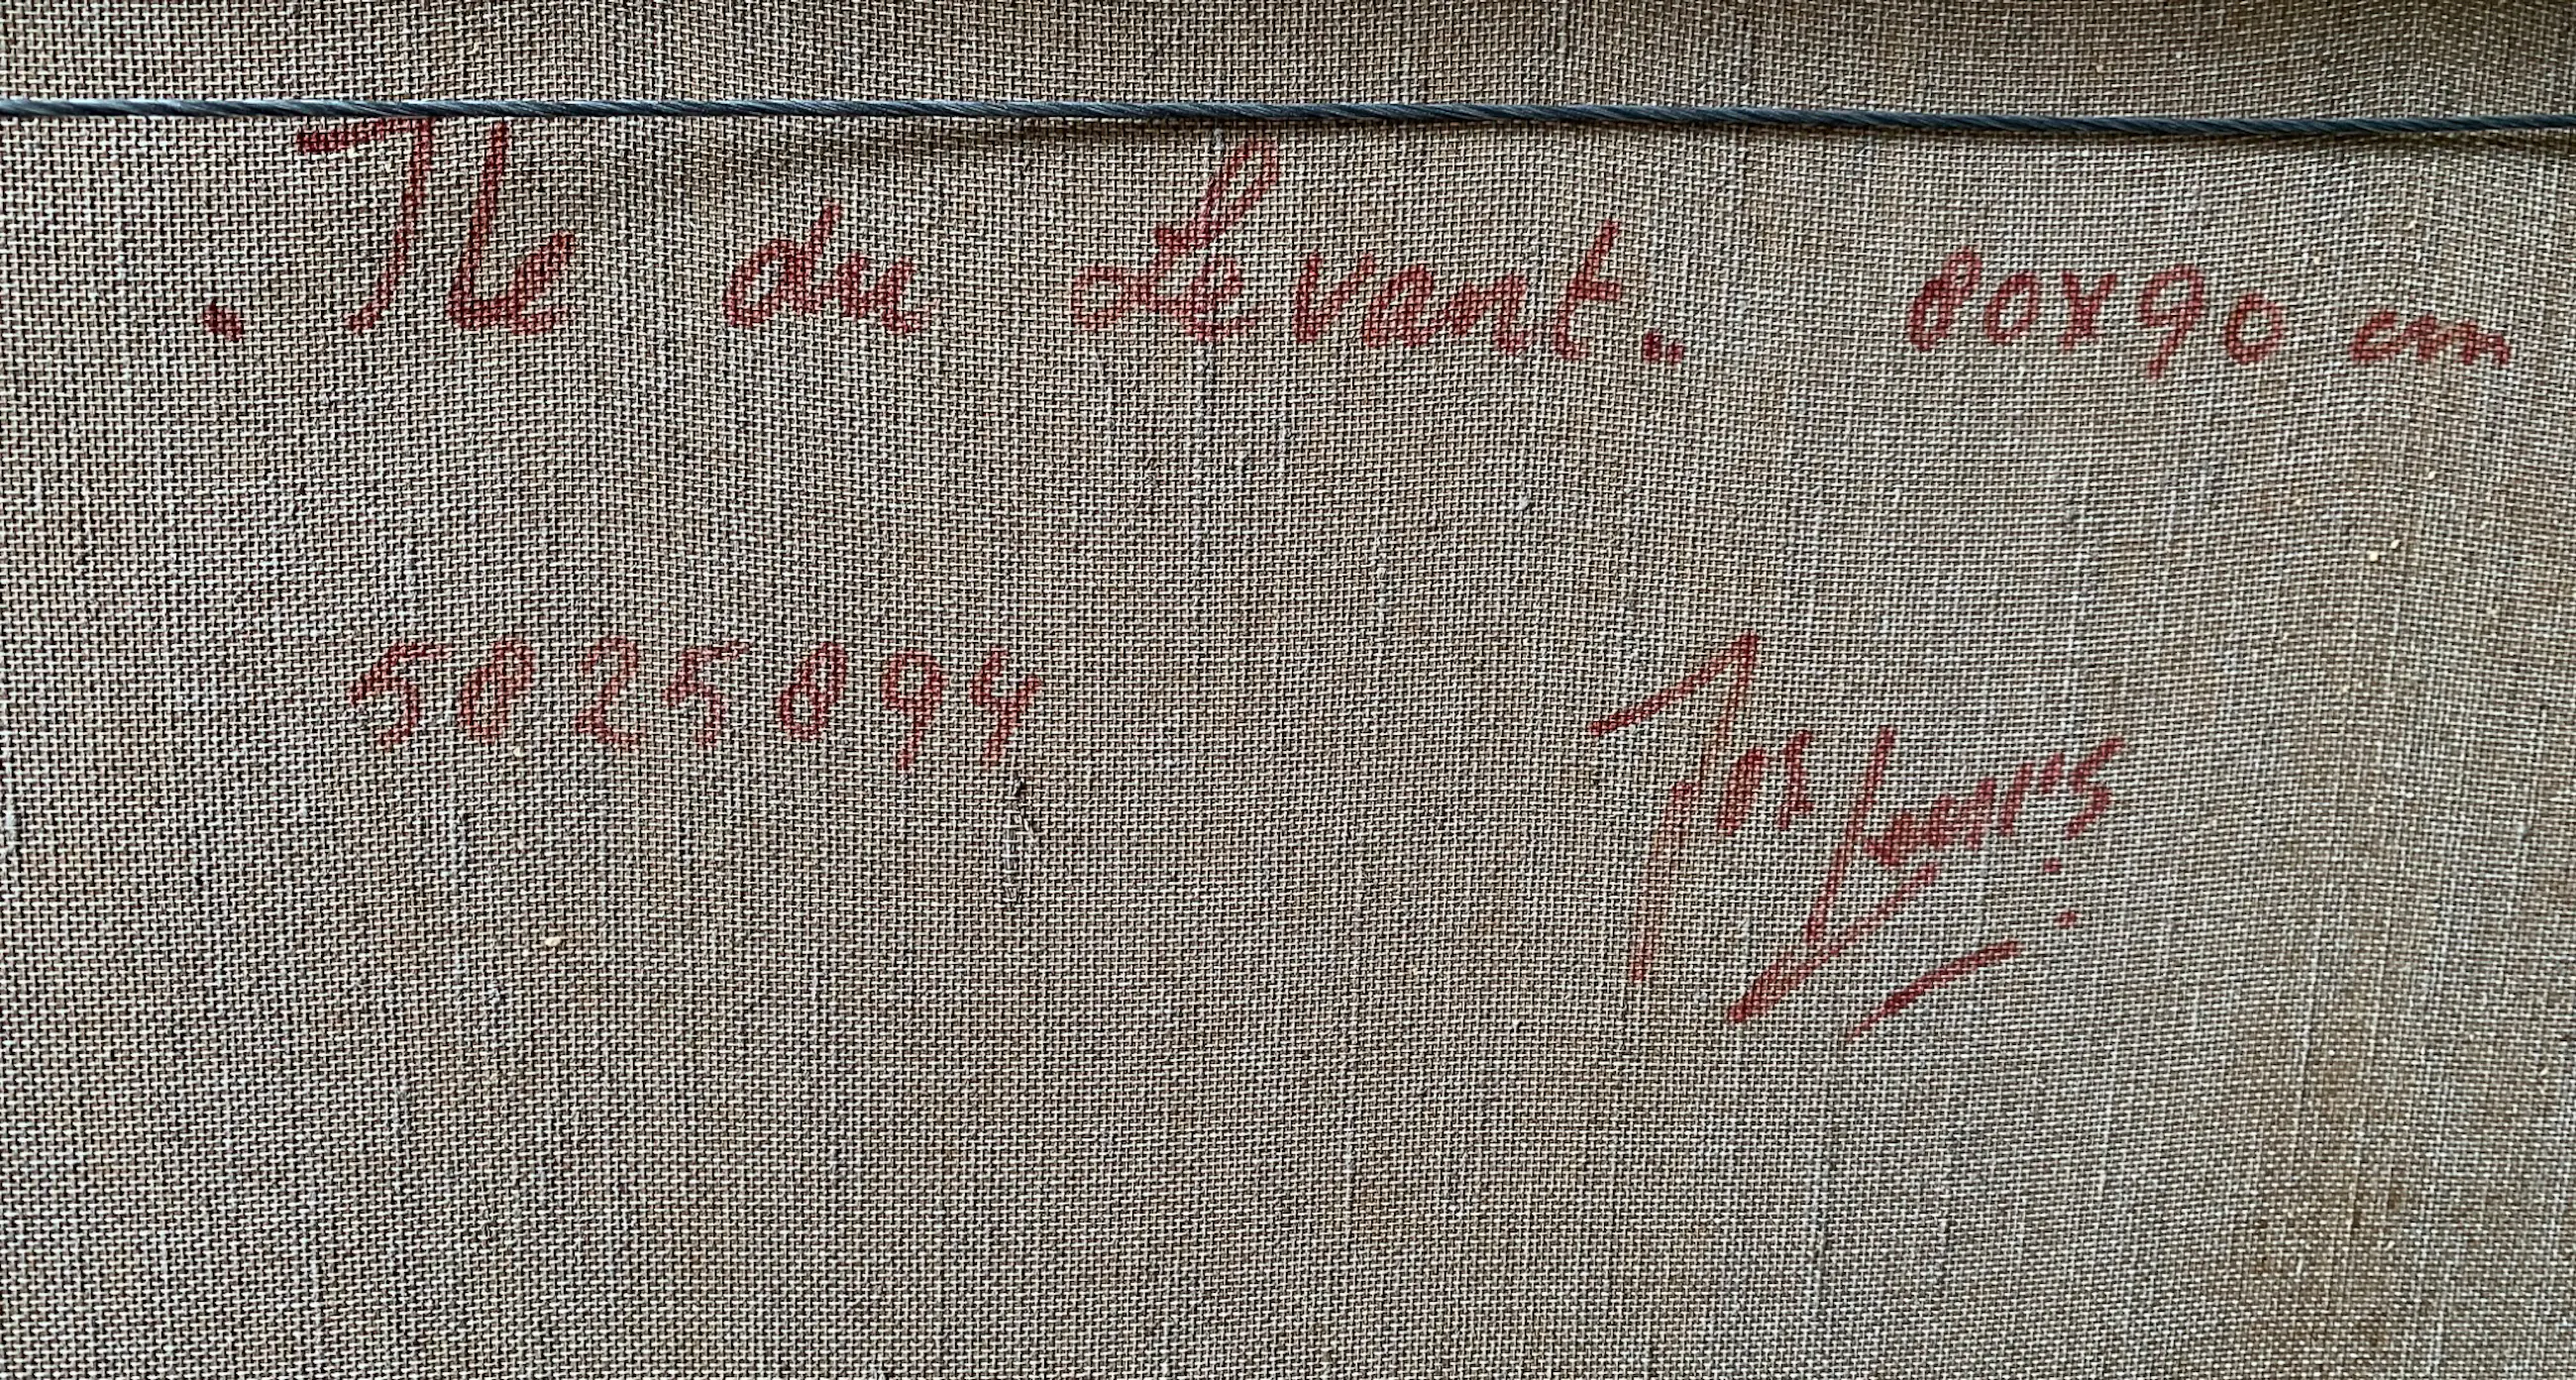 . Ile du Levant.. 80x90 cm
5825894
Jos Louis